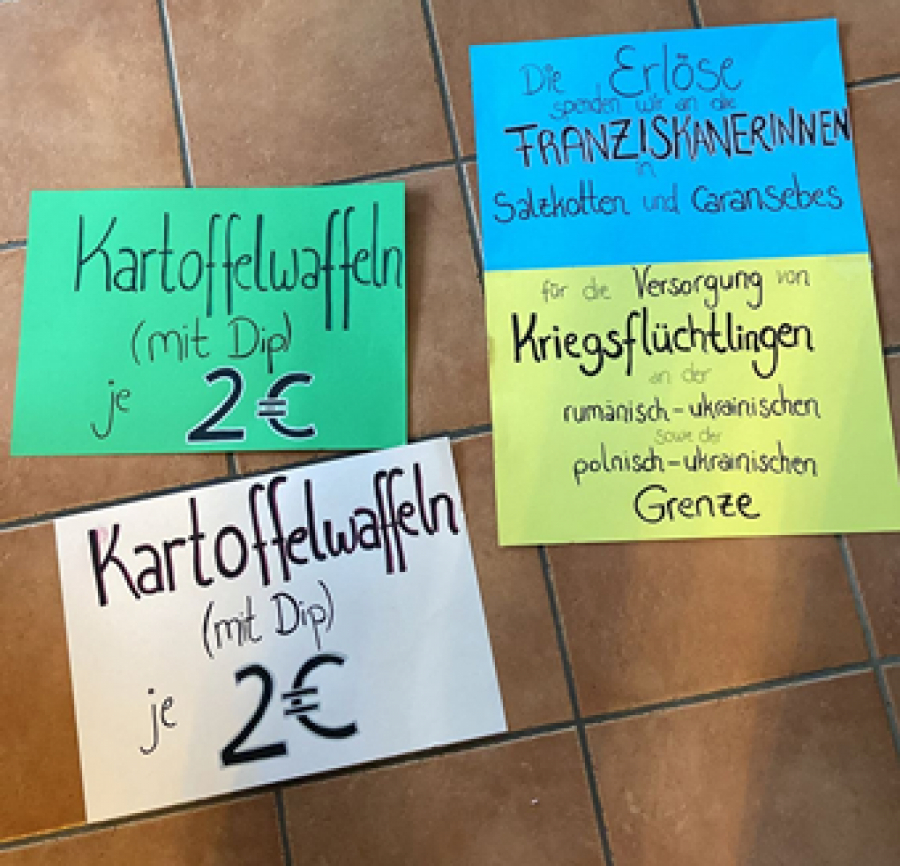 Kartoffelwaffeln
(mit Dip)
je 2€
Kartoffelwaffeln
(mit Dip)
je 2€
Die Erlöse
spenden wir an die
FRANZISKANERINNEN
in
Salzkotten und Caransebes
für die Versorgung von
Kriegsflüchtlingen
an der
rumänisch-ukrainischen
sowie der
polnisch-ukrainischen
Grenze